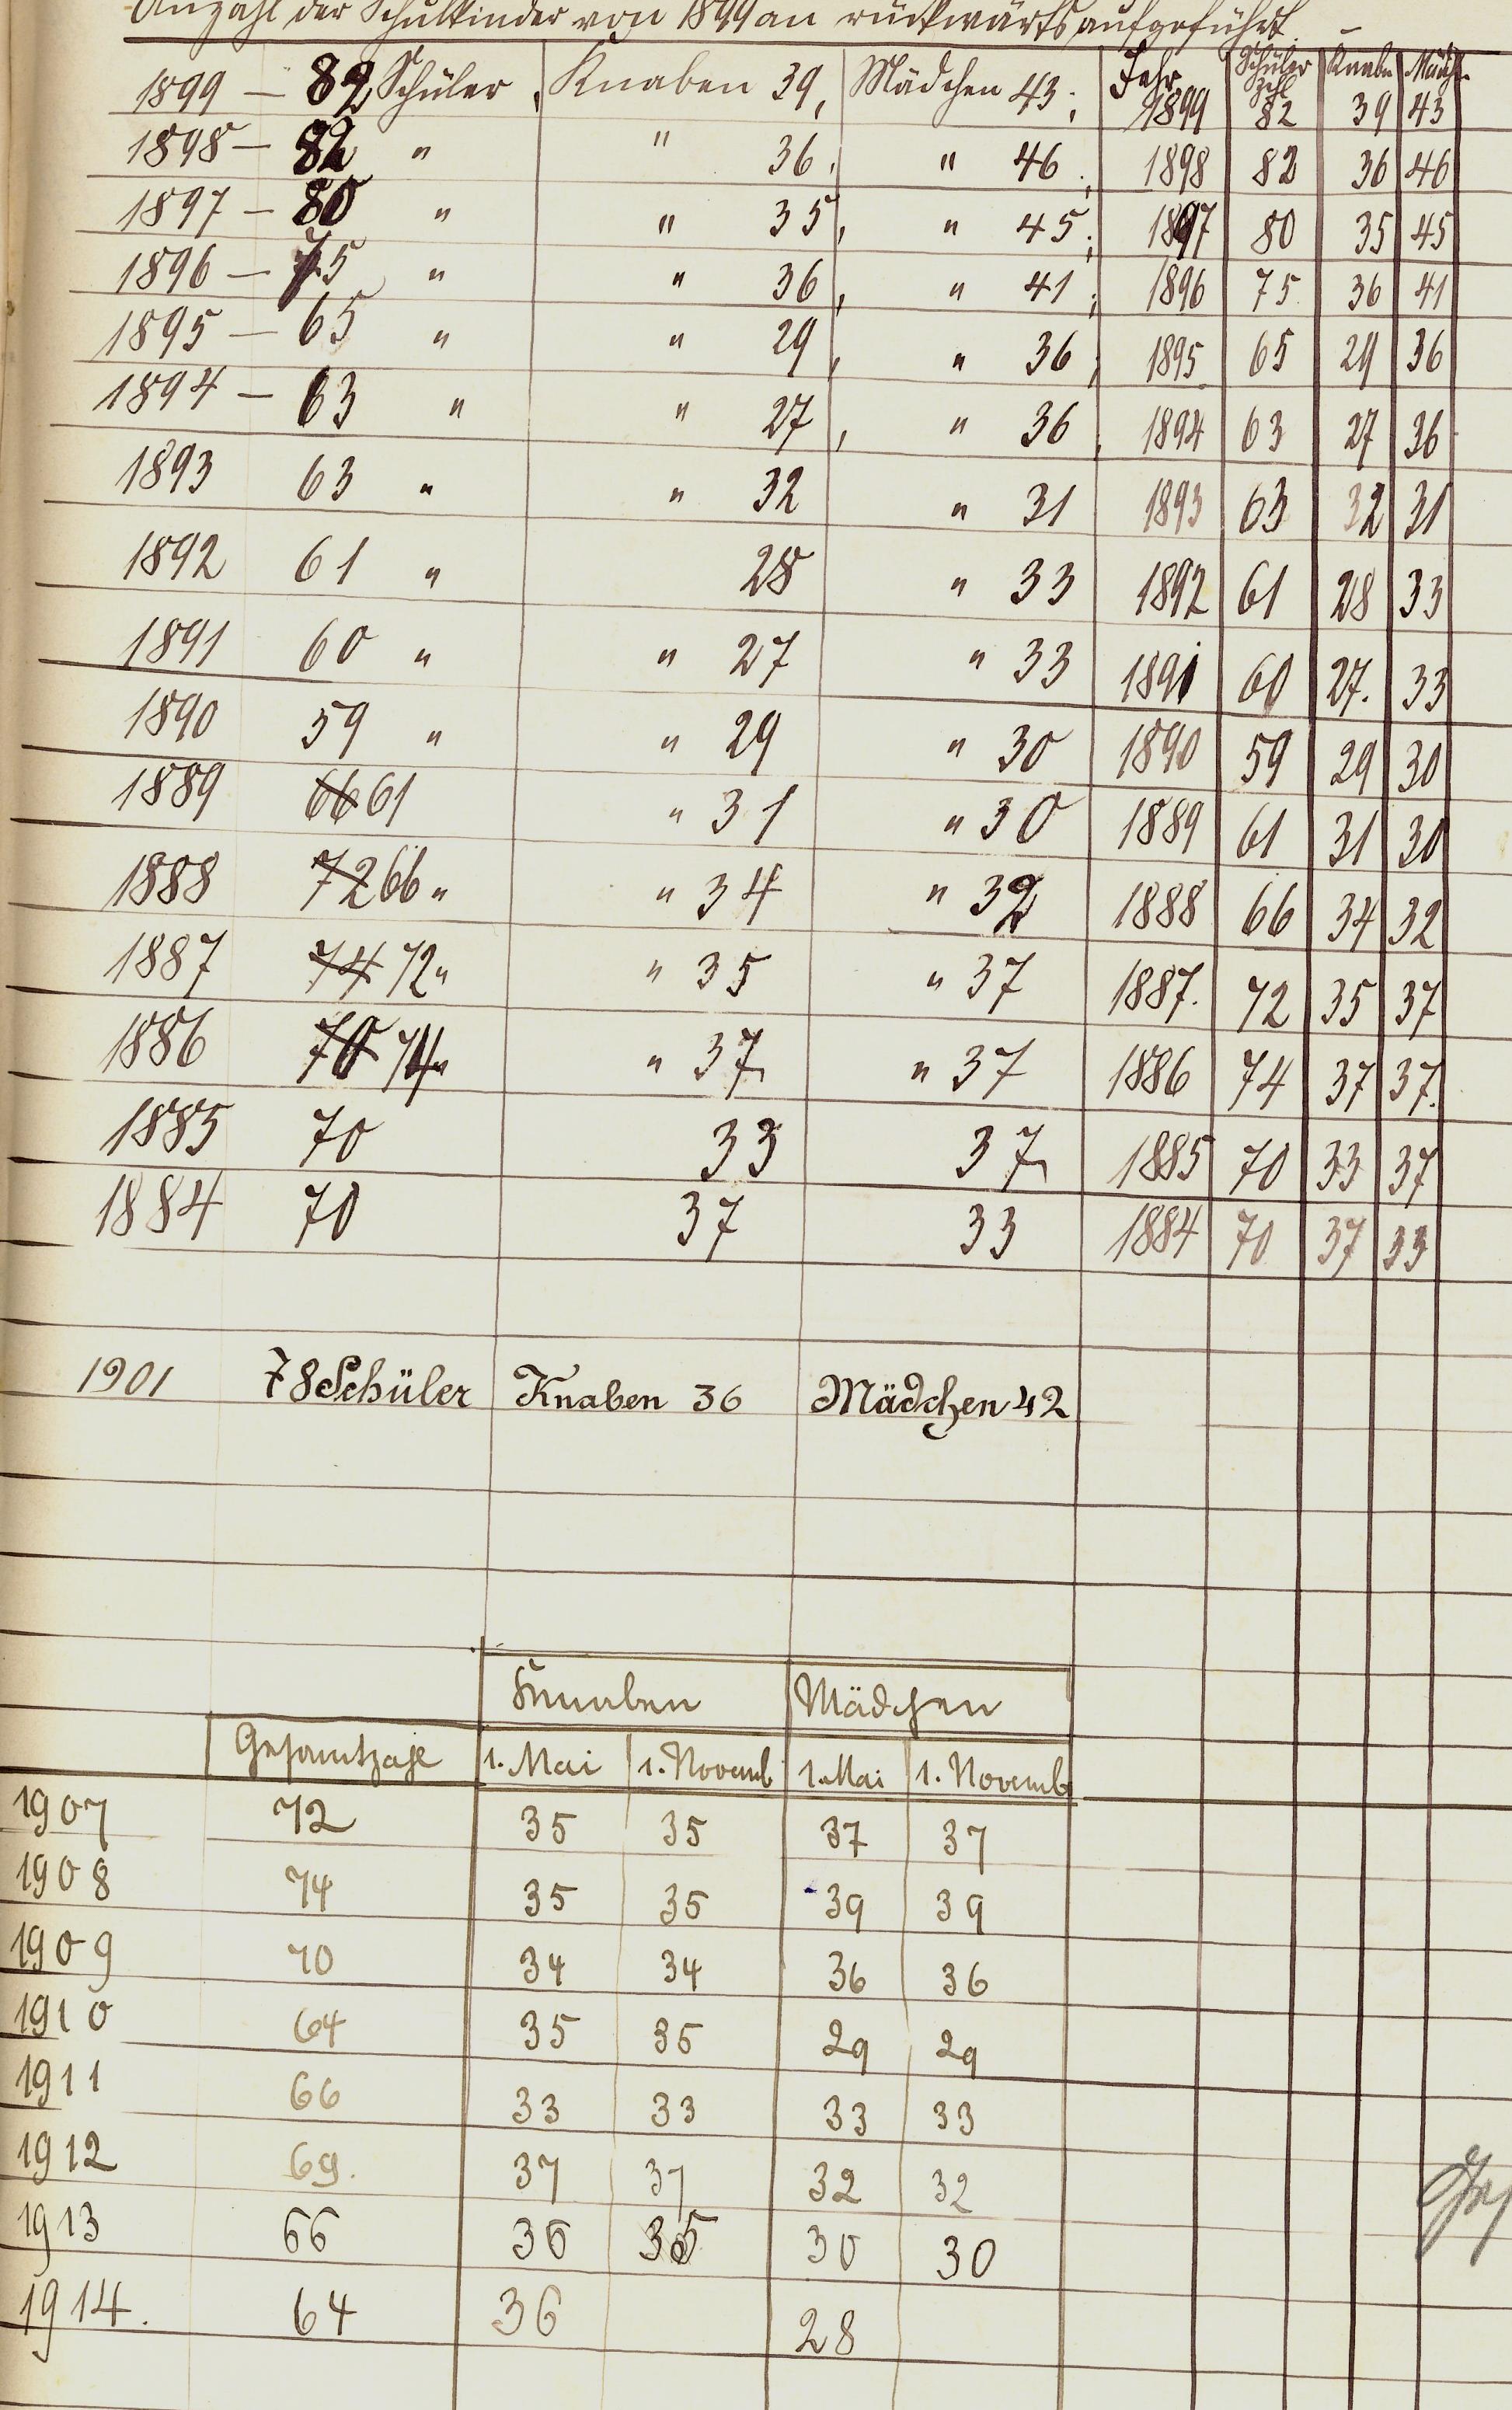 Anzahl der Schulkinder von 1899 an rückwärts aufgeführt. –
Jahr Schüler Zhl Knaben Mädch.
1899 – 82 Schüler, Knaben 39, Mädchen 43; 1899 82 39 43
1898 – 82 " " 36, " 46; 1898 82 36 46
1897 – 80 " " 35, " 45; 1897 80 35 45
1896 – 75 " " 36, " 41; 1896 75 36 41
1895 – 65 " " 29, " 36; 1895 65 29 36
1894 – 63 " " 27, " 36, 1894 63 27 36
1893 63 " " 32 " 31 1893 63 32 31
1892 61 " 28 " 33 1892 61 28 33
1891 60 " " 27 " 33 1891 60 27. 33
1890 59 " " 29 " 30 1890 59 29 30
1889 66 61 " 31 " 30 1889 61 31 30
1888 72 66 " " 34 " 32 1888 66 34 32
1887 74 72 " " 35 " 37 1887. 72 35 37
1886 70 74 " " 37 " 37 1886 74 37 37.
1885 70 33 37 1885 70 33 37
1884 70 37 33 1884 70 37 33
1901 78 Schüler Knaben 36 Mädchen 42
Knaben Mädchen
Gesamtzahl 1. Mai 1. Novemb 1. Mai 1. Novemb
1907 72 35 35 37 37
1908 74 35 35 39 39
1909 70 34 34 36 36
1910 64 35 35 29 29
1911 66 33 33 33 33
1912 69. 37 37 32 32
1913 66 36 35 30 30
1914. 64 36 28